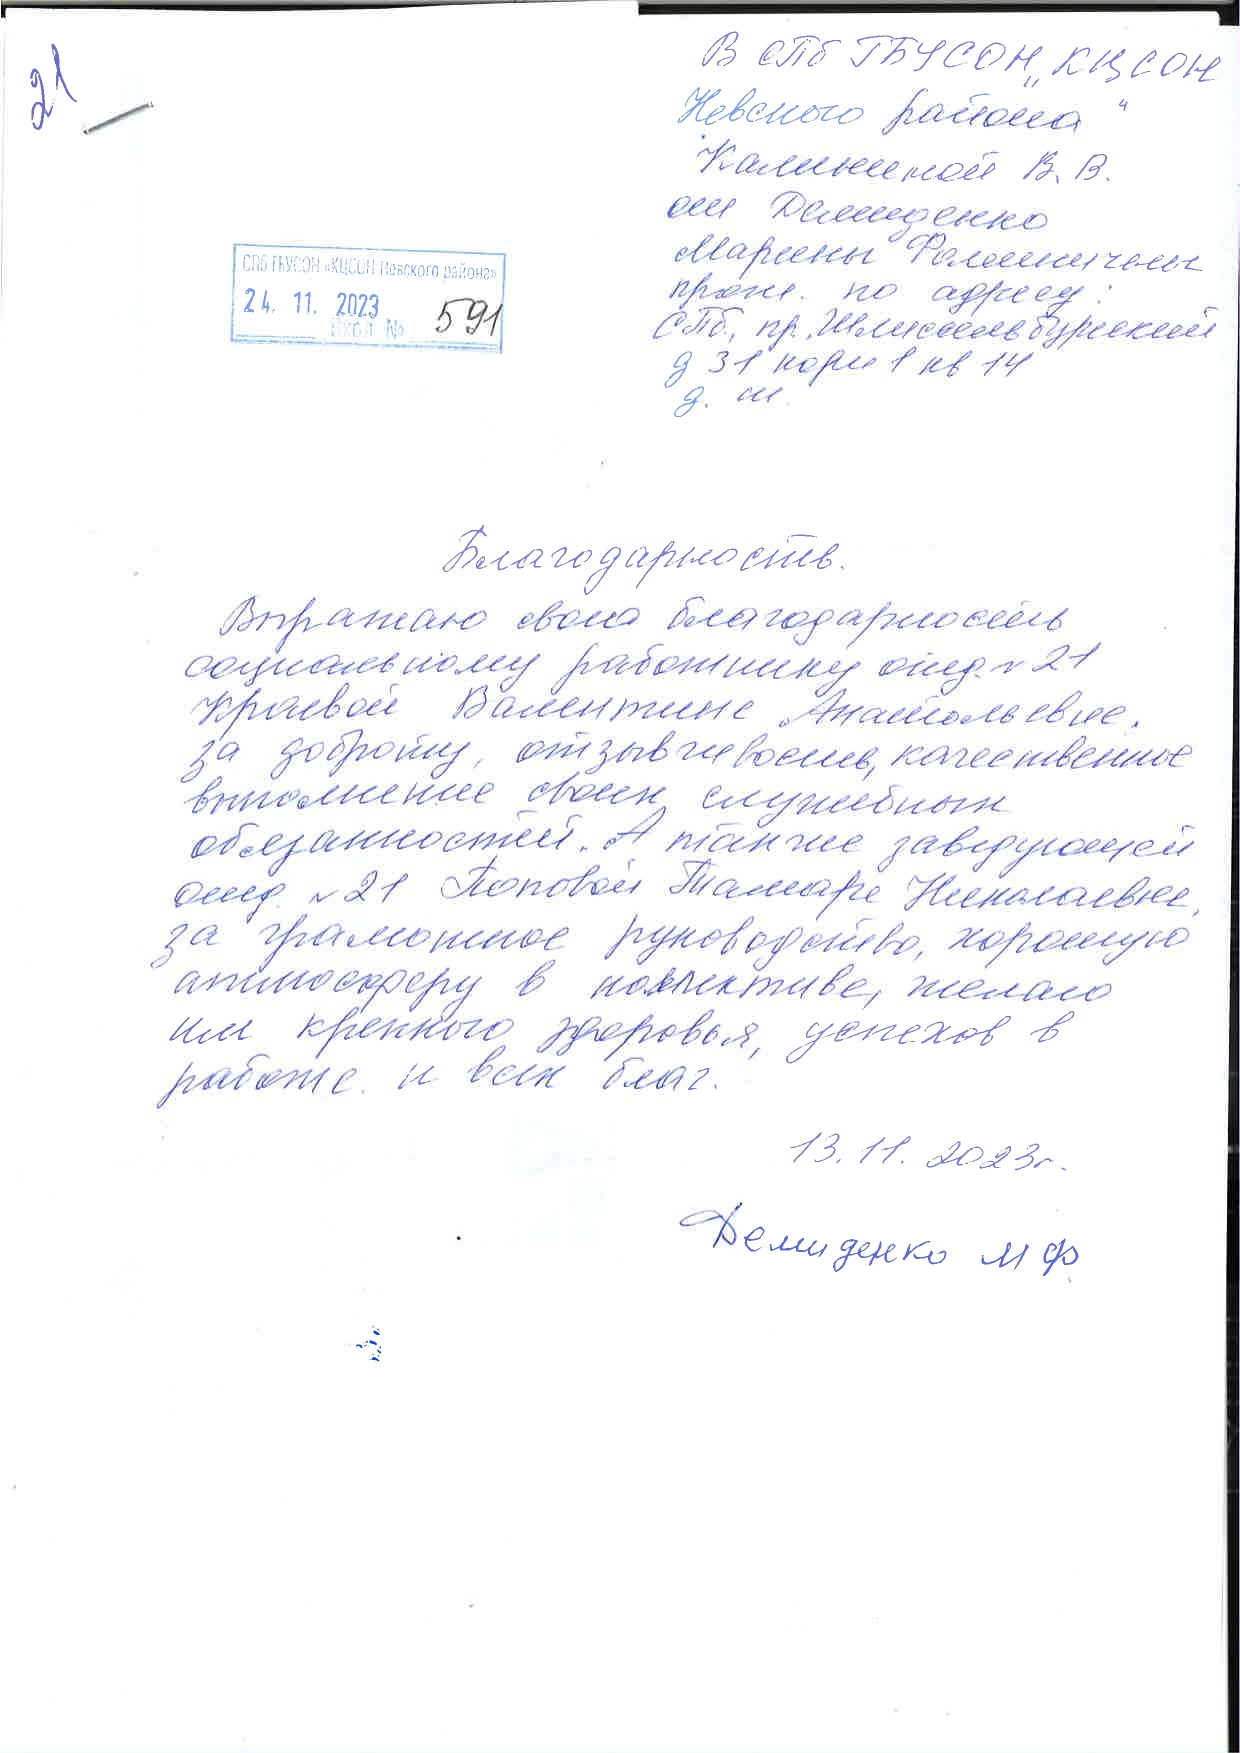 21
В СПб ГБУСОН „КЦСОН
Невского района"
Калининой В. В.
от Демиденко
Марины
прож. по адресу:
СПб, пр. Шлиссельбургский
д 31 корп 1 кв 14
д. т.
СПб ГБУСОН «КЦСОН Невского района»
24. 11. 2023
Вход № 591
Благодарность.
Выражаю свою благодарность
социальному работнику отд. № 21
Краевой Валентине Анатольевне.
за доброту, отзывчивость, качественное
выполнение своих служебных
обязанностей. А также заведующей
отд. № 21 Поповой Тамаре Николаевне,
за грамотное руководство, хорошую
атмосферу в коллективе, желаю
им крепкого здоровья, успехов в
работе. и всех благ.
13. 11. 2023г.
Демиденко М Ф